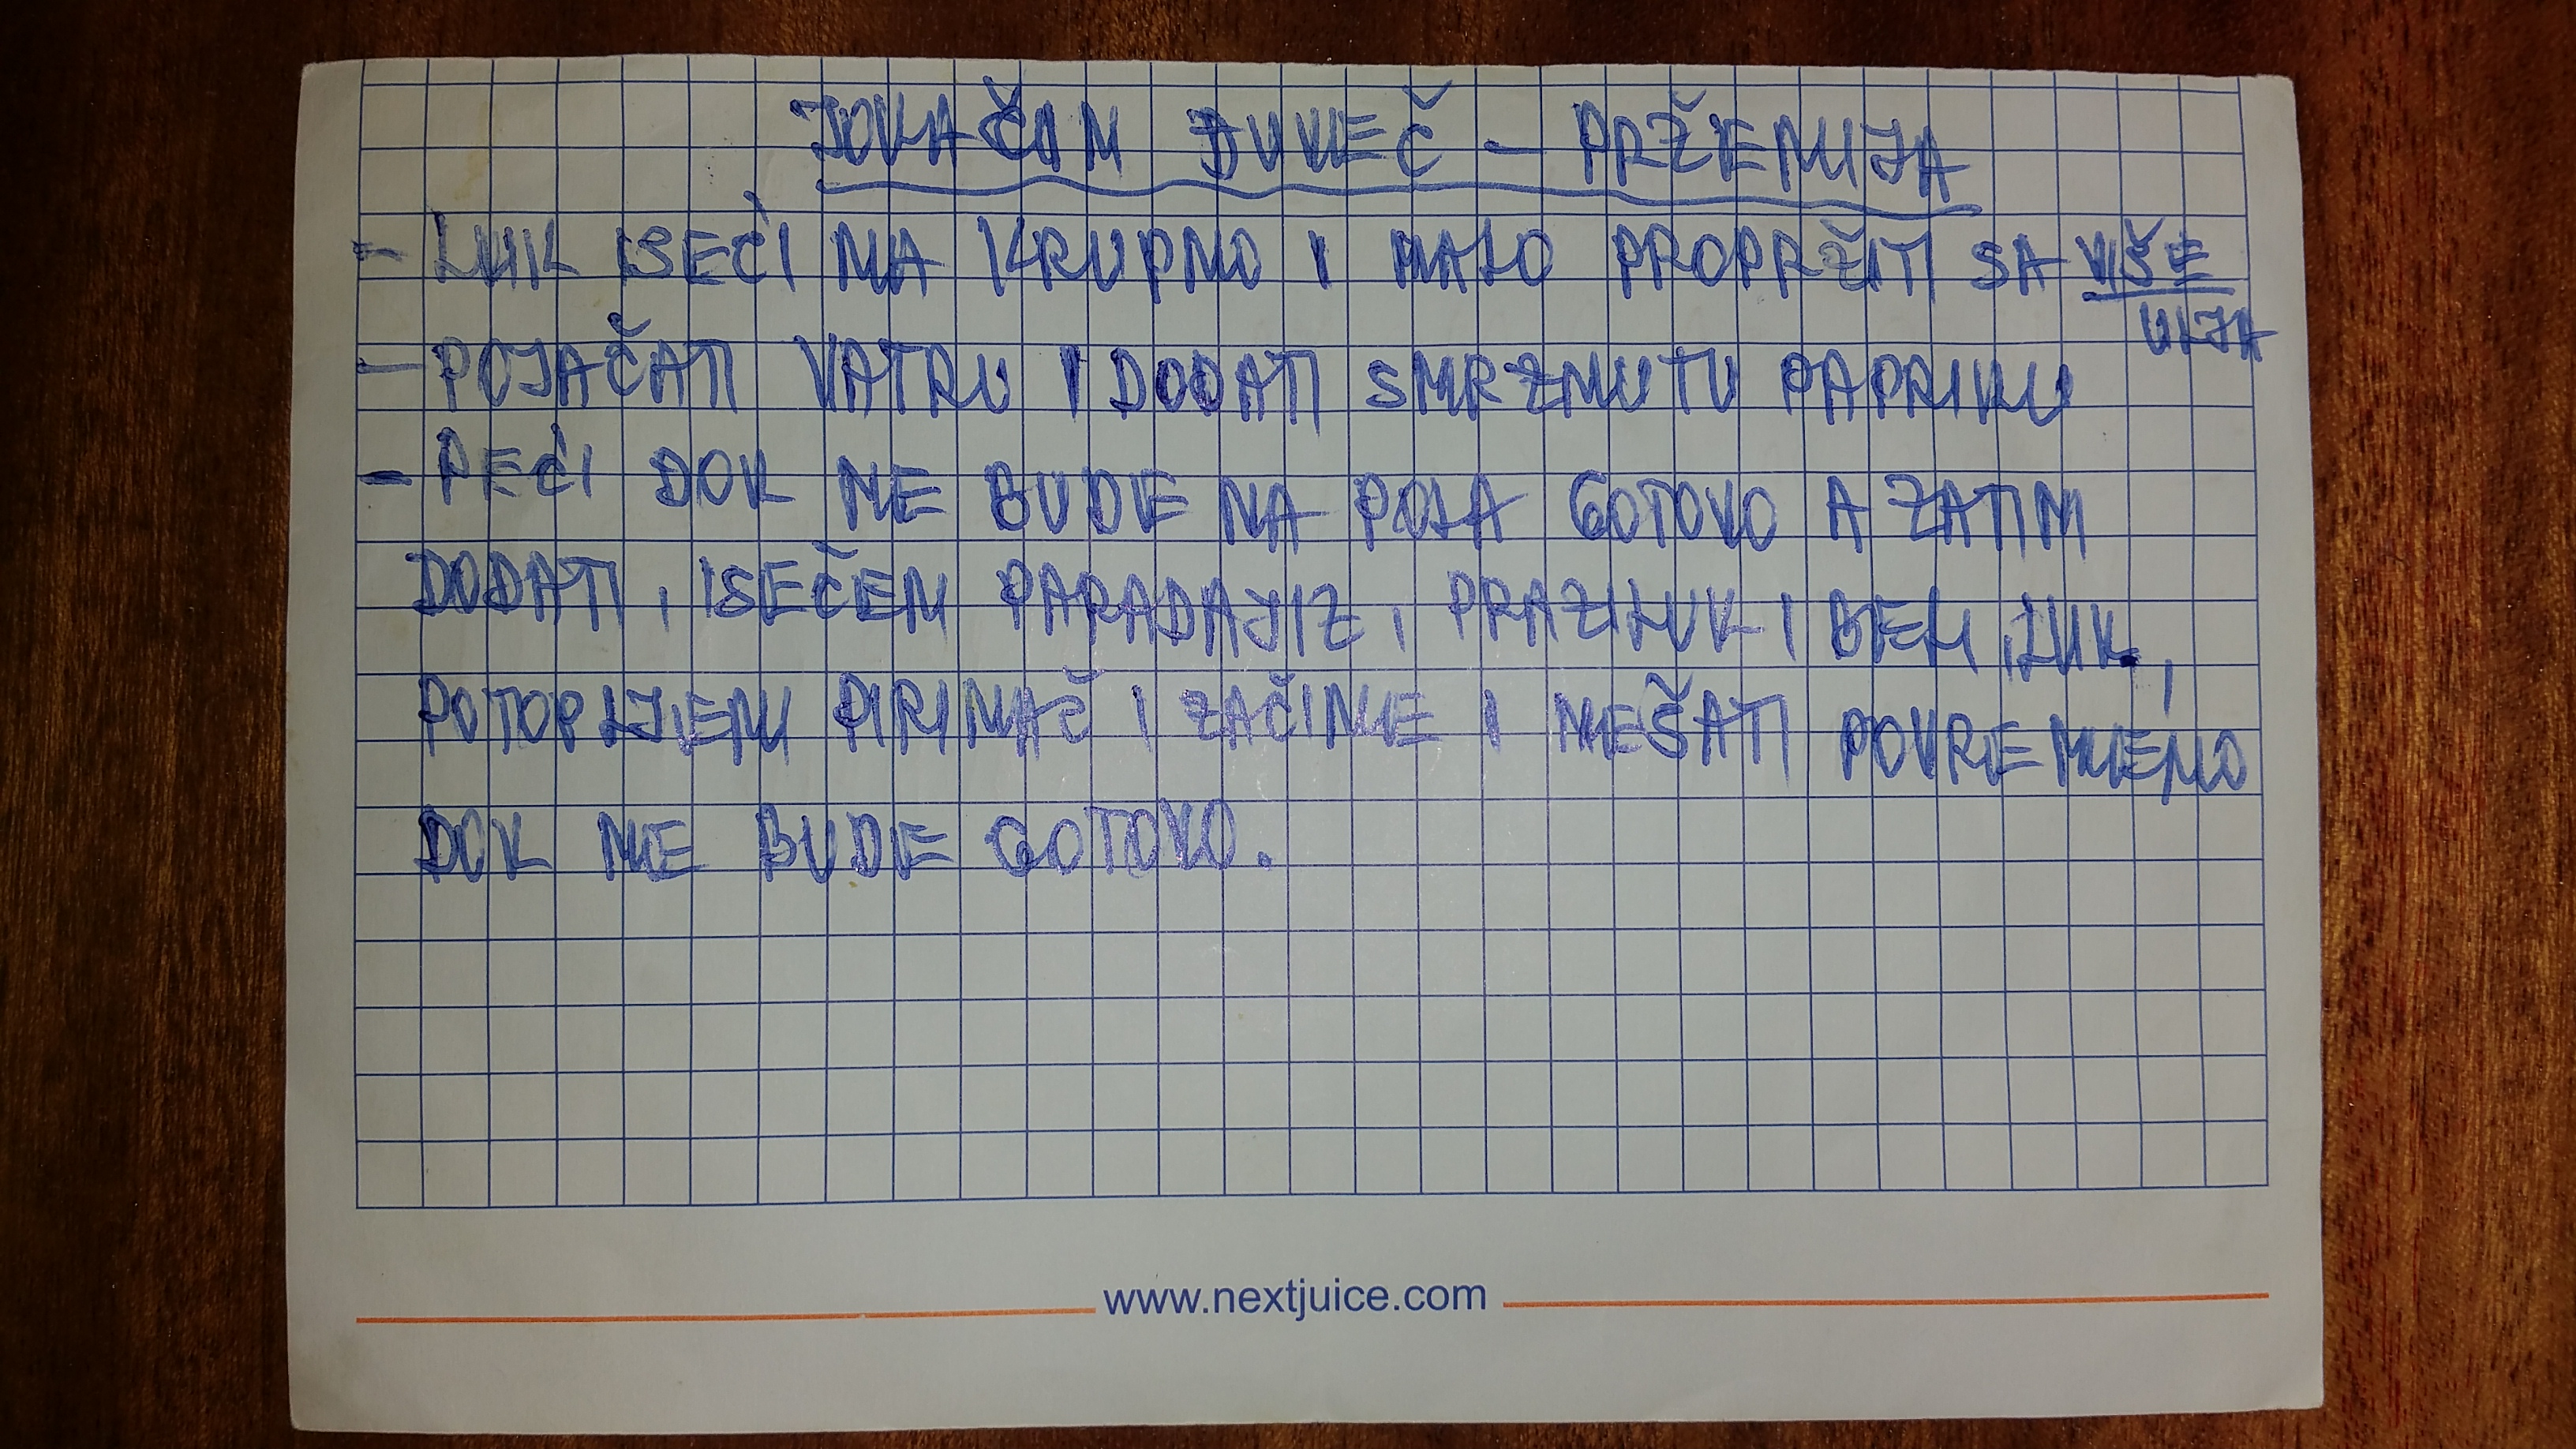 JOVAČIN ĐUVEČ - PRŽENIJA
- LUK ISEĆI NA KRUPNO I MALO PROPRŽITI SA VIŠE ULJA
- POJAČATI VATRU I DODATI SMRZNUTU PAPRIKU
- PEĆI DOK NE BUDE NA POLA GOTOVO A ZATIM
DODATI, ISEČEN PARADAJIZ, PRAZILUK I BELI LUK,
POTOPLJENI PIRINAČ I ZAČINE I MEŠATI POVREMENO
DOK NE BUDE GOTOVO.
www.nextjuice.com